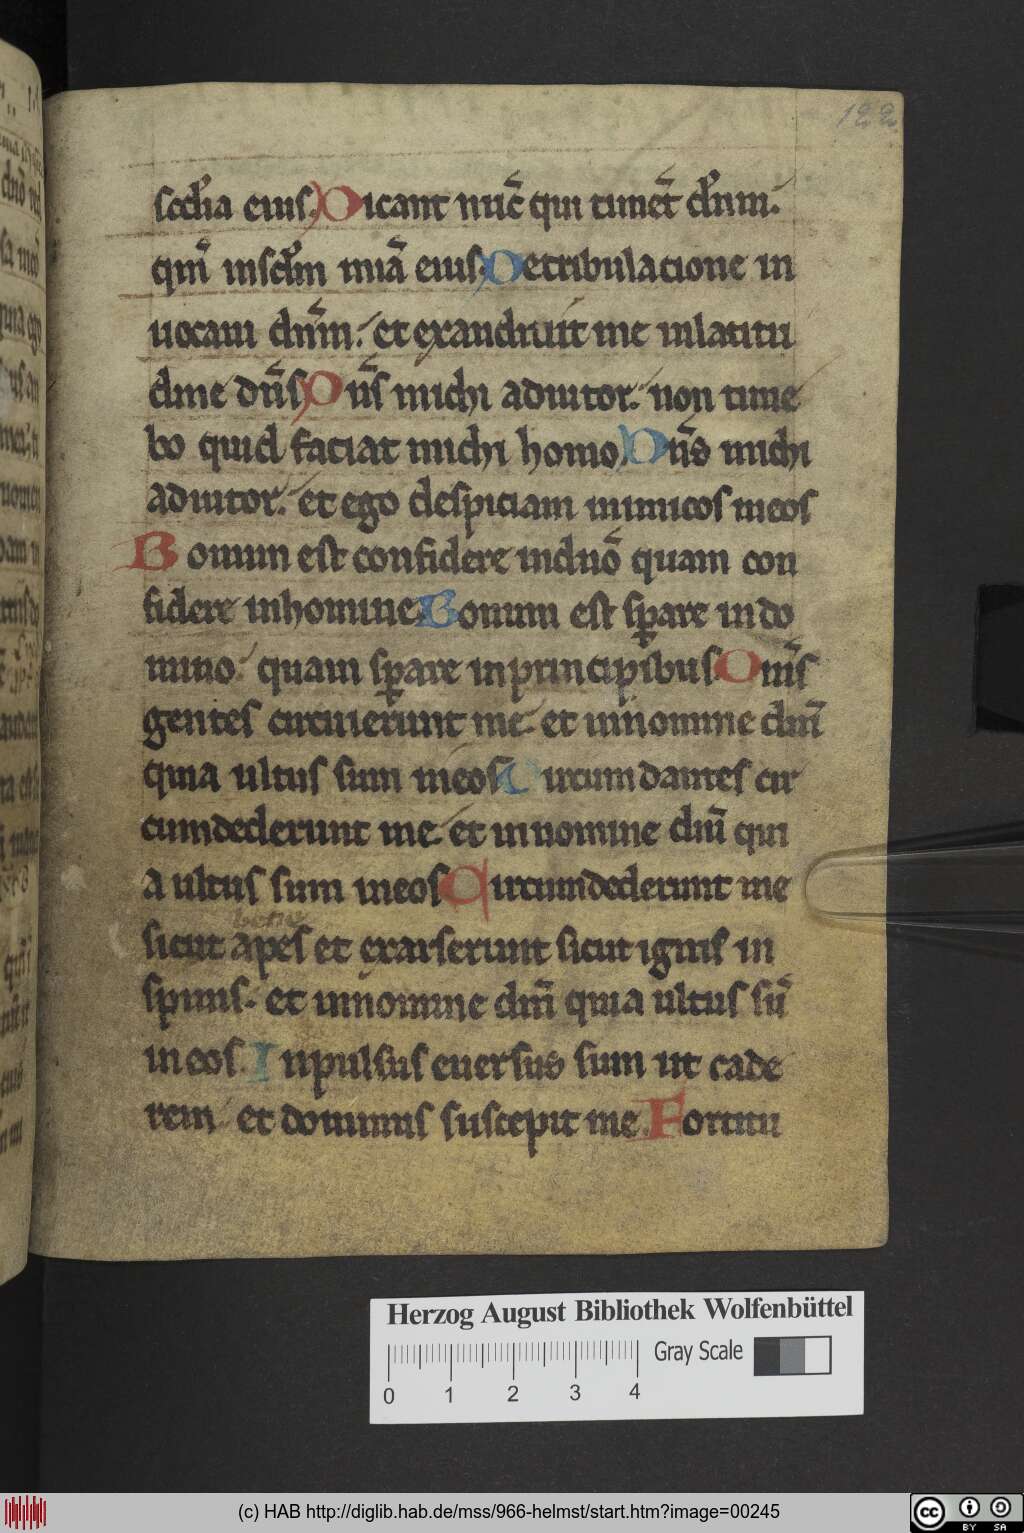 122
scĺm mia eius. Dicant nūc qui timēt dn̄m.
qm̄ inseclm̄ mīa eius. De tribulacione in
uocaui dn̄m. et exaudiuit me inlatitu
dine dn̄s Dn̄s michi adiutor. non time
bo quid faciat michi homo. Dn̄s michi
adiutor. et ego despiciam inimicos meos
Bonum est confidere indn̄o quam con
fidere inhomine. Bonum est sꝑare indo
mino quam sꝑare inprincipibus. Omn̄s
gentes circuierunt me. et innomine dn̄i
quia ultus sum ineos Circumdantes cir
cumdederunt me. et innomine dn̄i qui
a ultus sum ineos Circumdederunt me
sicut apes et exarserunt sicut ignis in
spinis. et innomine dn̄i quia ultus sū
ineos. Inpulsus euersus sum ut cade
rem et dominus suscepit me. Fortitu
Herzog August Bibliothek Wolfenbüttel
Gray Scale
0 1 2 3 4
(c) HAB http://diglib.hab.de/mss/966-helmst/start.htm?image=00245
cc BY SA